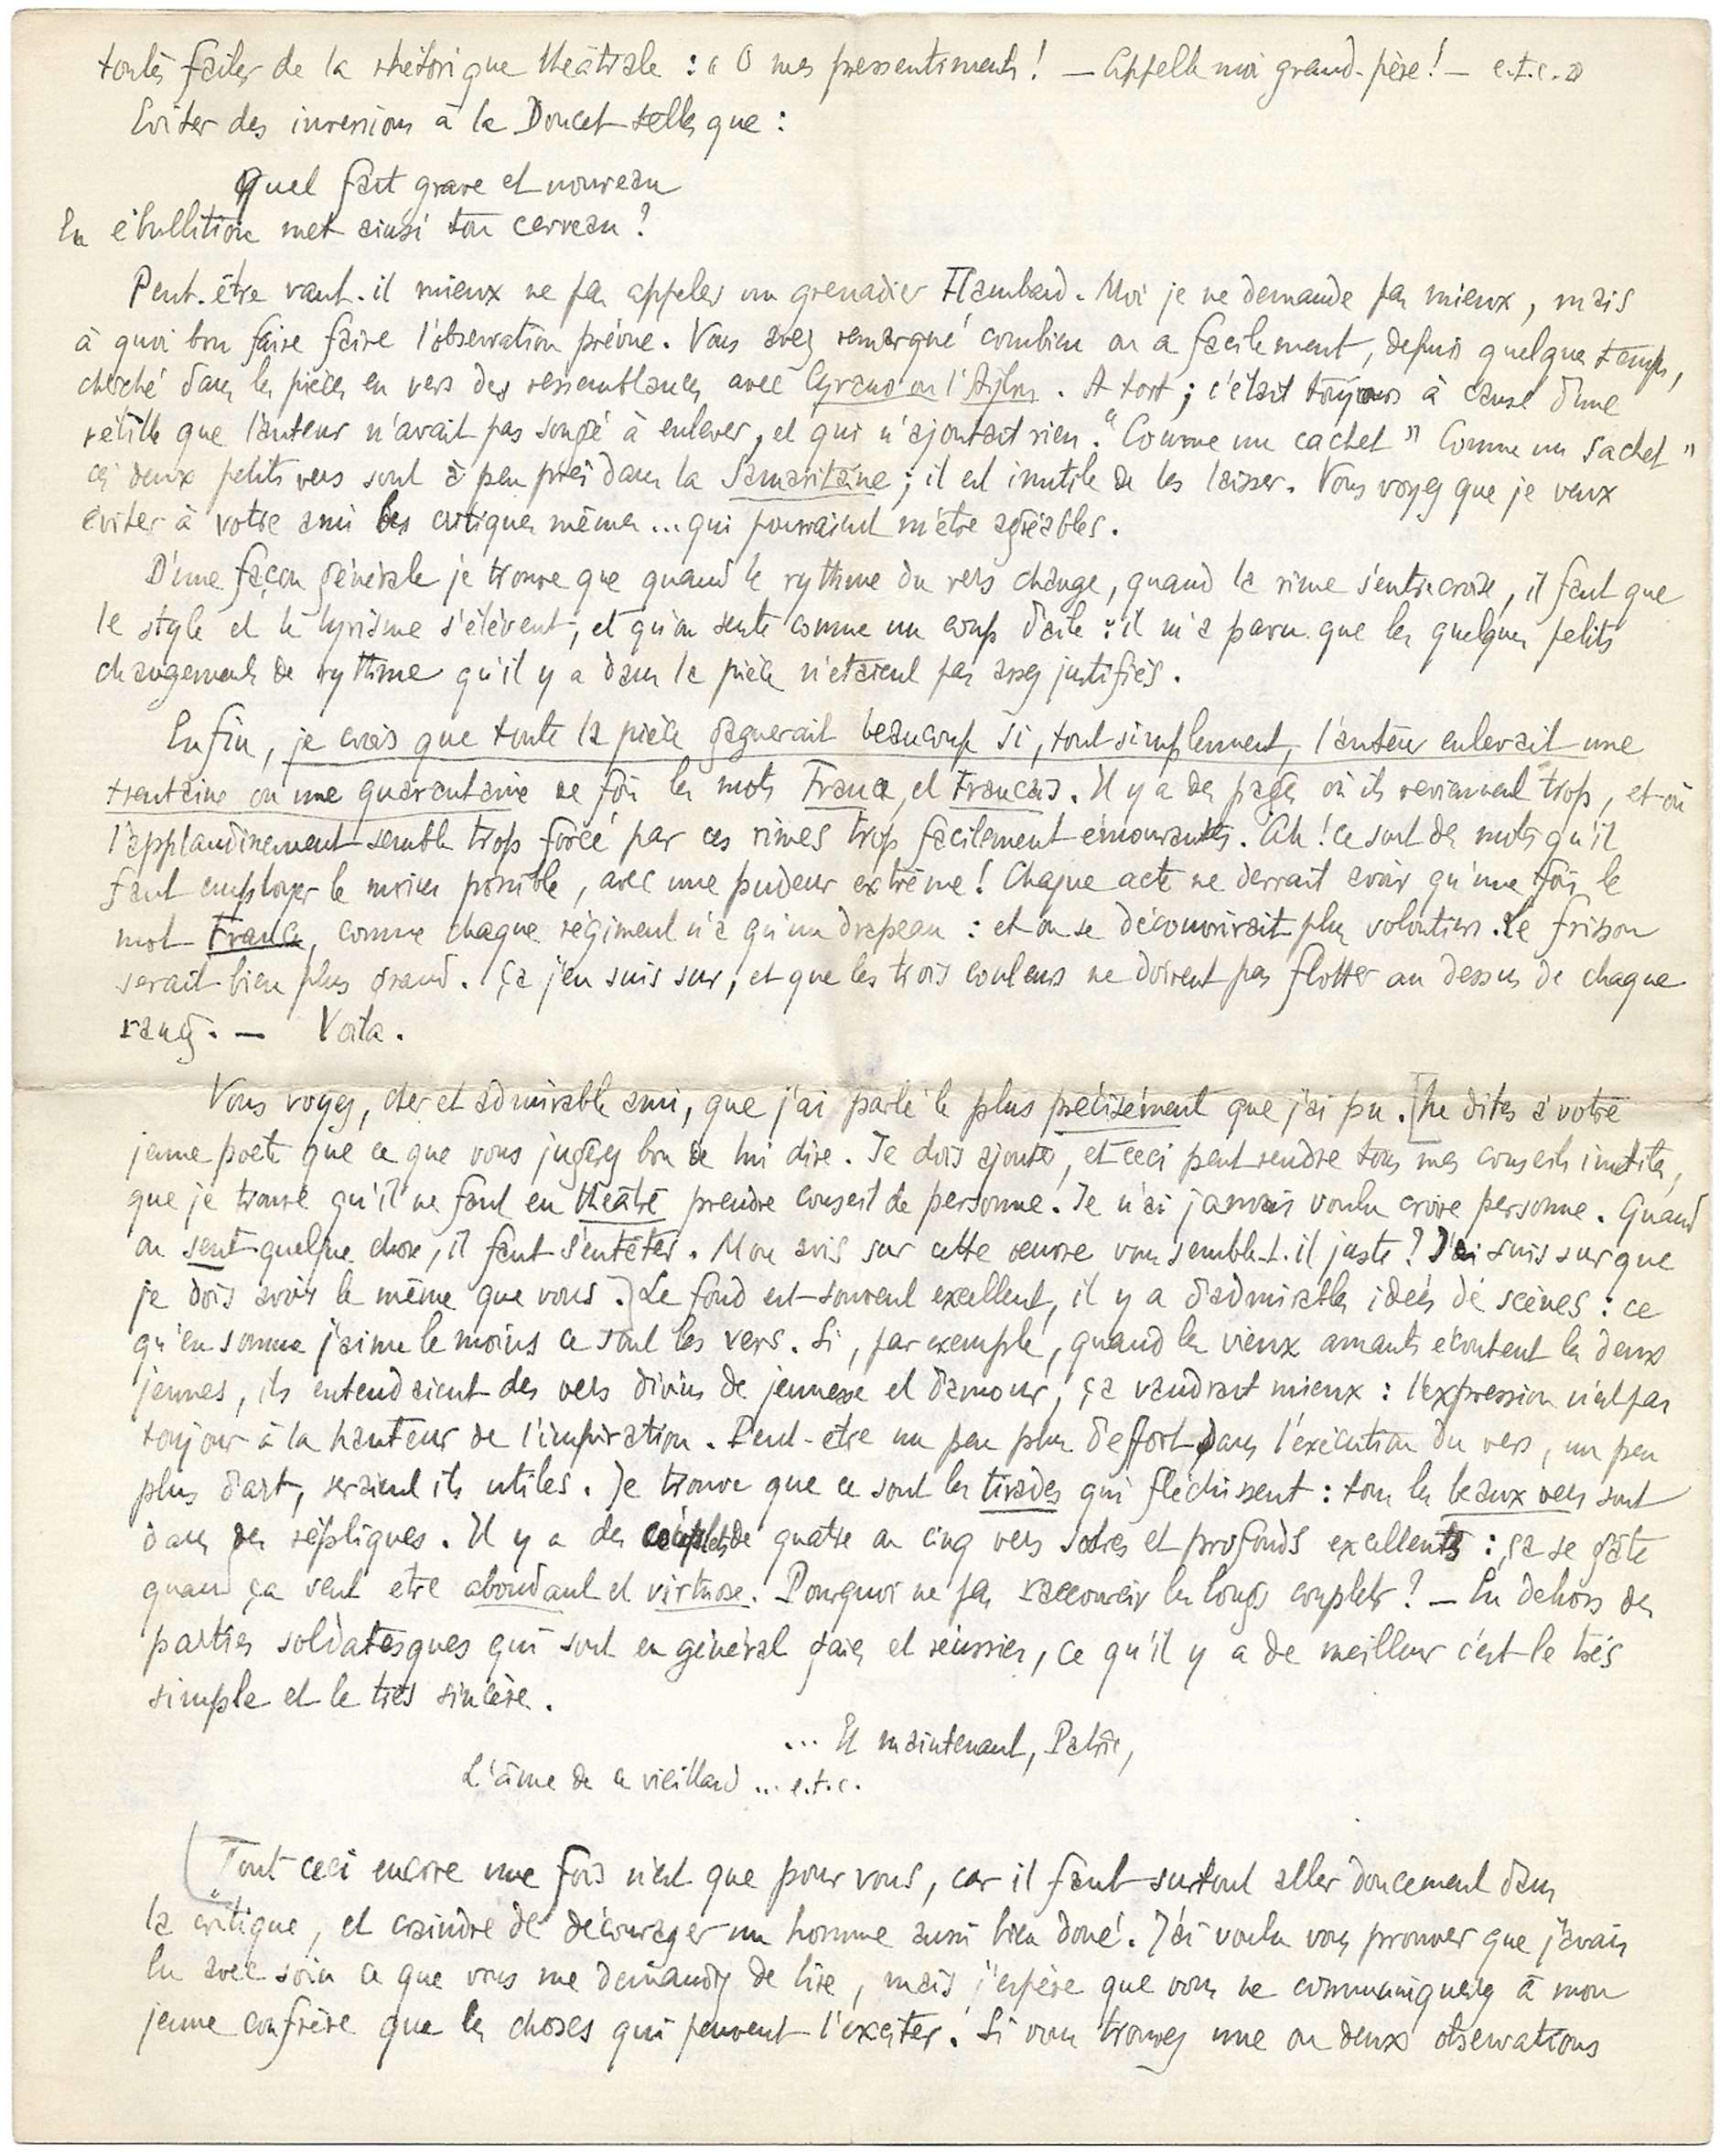 toutes faites de la rhétorique théâtrale : « O mes pressentiments ! — Appelle moi grand-père ! — e.t.c. »
Eviter des inversions à la Doucet telles que :
Quel fait grave et nouveau
En ébullition met ainsi ton cerveau ?
Peut-être vaut-il mieux ne pas appeler un grenadier Flambard. Moi je ne demande pas mieux, mais
à quoi bon faire faire l'observation prévue. Vous avez remarqué combien on a facilement, depuis quelque temps,
cherché dans les pièces en vers des ressemblances avec Cyrano ou l'Aiglon. A tort ; c'était toujours à cause d'une
vétille que l'auteur n'avait pas songé à enlever, et qui n'ajoutait rien. "Comme un cachet" "Comme un sachet"
ces deux petits vers sont à peu près dans la Samaritaine ; il est inutile de les laisser. Vous voyez que je veux
éviter à votre ami les critiques mêmes ... qui pourraient m'être agréables.
D'une façon générale je trouve que quand le rythme du vers change, quand la rime s'entrecroise, il faut que
le style et le lyrisme s'élèvent, et qu'on sente comme un coup d'aile : il m'a paru que les quelques petits
changements de rythme qu'il y a dans la pièce n'étaient pas assez justifiés.
Enfin, je crois que toute la pièce gagnerait beaucoup si, tout simplement, l'auteur enlevait une
trentaine ou une quarantaine de fois les mots France, et Français. Il y a des pages où ils reviennent trop, et où
l'applaudissement semble trop forcé par ces rimes trop facilement émouvantes. Ah ! ce sont des mots qu'il
faut employer le moins possible, avec une pudeur extrême ! Chaque acte ne devrait avoir qu'une fois le
mot France, comme chaque régiment n'a qu'un drapeau : et on se découvrirait plus volontiers. Le frisson
serait bien plus grand. Ça j'en suis sur, et que les trois couleurs ne doivent pas flotter au dessus de chaque
rang. — Voila.
Vous voyez, cher et admirable ami, que j'ai parlé le plus précisément que j'ai pu. [Ne dites à votre
jeune poète que ce que vous jugerez bon de lui dire. Je dois ajouter, et ceci peut rendre tous mes conseils inutiles,
que je trouve qu'il ne faut en théâtre prendre conseil de personne. Je n'ai jamais voulu croire personne. Quand
on sent quelque chose, il faut s'entêter. Mon avis sur cette oeuvre vous semble-t-il juste ? J'en suis sur que
je dois avoir le même que vous.] Le fond est souvent excellent, il y a d'admirables idées de scènes : ce
qu'en somme j'aime le moins ce sont les vers. Si, par exemple, quand les vieux amants écoutent les deux
jeunes, ils entendaient des vers divins de jeunesse et d'amour, ça vaudrait mieux : l'expression n'est pas
toujours à la hauteur de l'inspiration. Peut-être un peu plus d'effort dans l'exécution du vers, un peu
plus d'art, seraient ils utiles. Je trouve que ce sont les tirades qui fléchissent : tous les beaux vers sont
dans des répliques. Il y a des couplets de quatre ou cinq vers sobres et profonds excellents : ça se gâte
quand ça veut être abondant et virtuose. Pourquoi ne pas raccourcir les longs couplets ? — En dehors des
parties soldatesques qui sont en général gaies et réussies, ce qu'il y a de meilleur c'est le très
simple et le très sincère.
... Et maintenant, Patrie,
L'âme de ce vieillard ... e.t.c.
(Tout ceci encore une fois n'est que pour vous, car il faut surtout aller doucement dans
la critique, et craindre de décourager un homme aussi bien doué. J'ai voulu vous prouver que j'avais
lu avec soin ce que vous me demandiez de lire, mais j'espère que vous ne communiquerez à mon
jeune confrère que les choses qui peuvent l'exciter. Si vous trouvez une ou deux observations